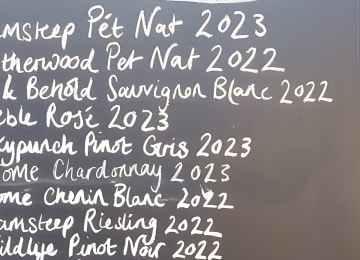 amsteep Pét Nat 2023
therwood Pet Nat 2022
& Behold Sauvignon Blanc 2022
eble Rosé 2023
kypunch Pinot Gris 2023
ome Chardonnay 2023
ome Chenin Blanc 2022
amsteep Riesling 2022
ildlye Pinot Noir 2022